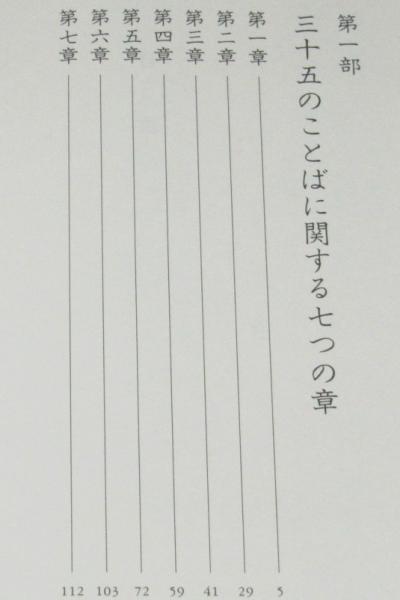 第一部
三十五のことばに関する七つの章
第一章 5
第二章 29
第三章 41
第四章 59
第五章 72
第六章 103
第七章 112